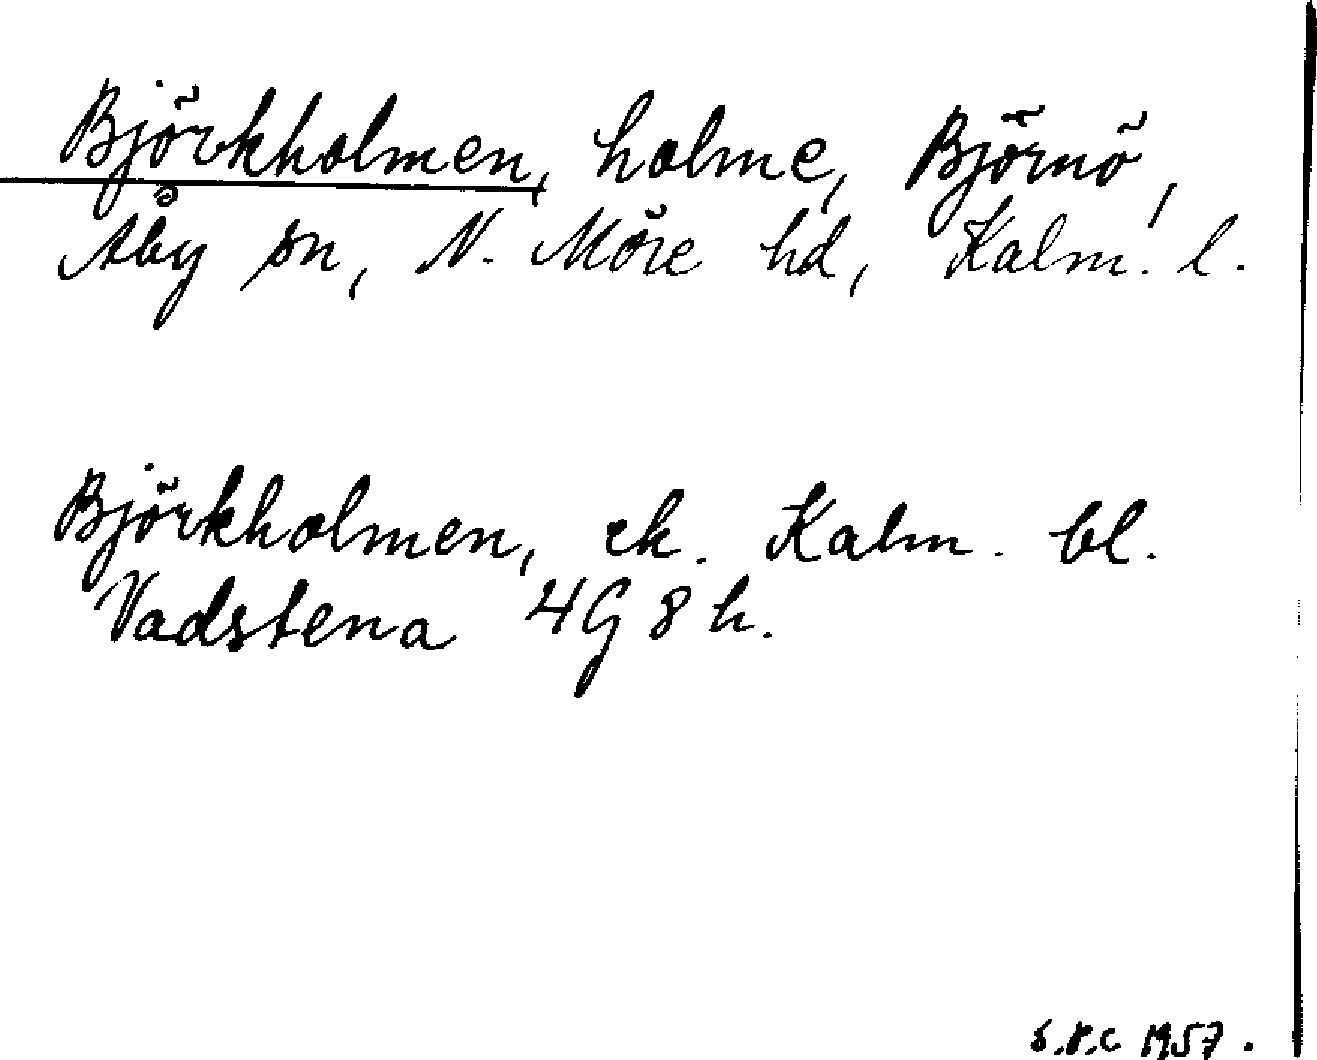 Björkholmen, holme, Björnö,
Åby sn, N. Möre hd, Kalm. l.
Björkholmen, ek. Kalm. bl.
Vadstena 4G 8h.
1957.